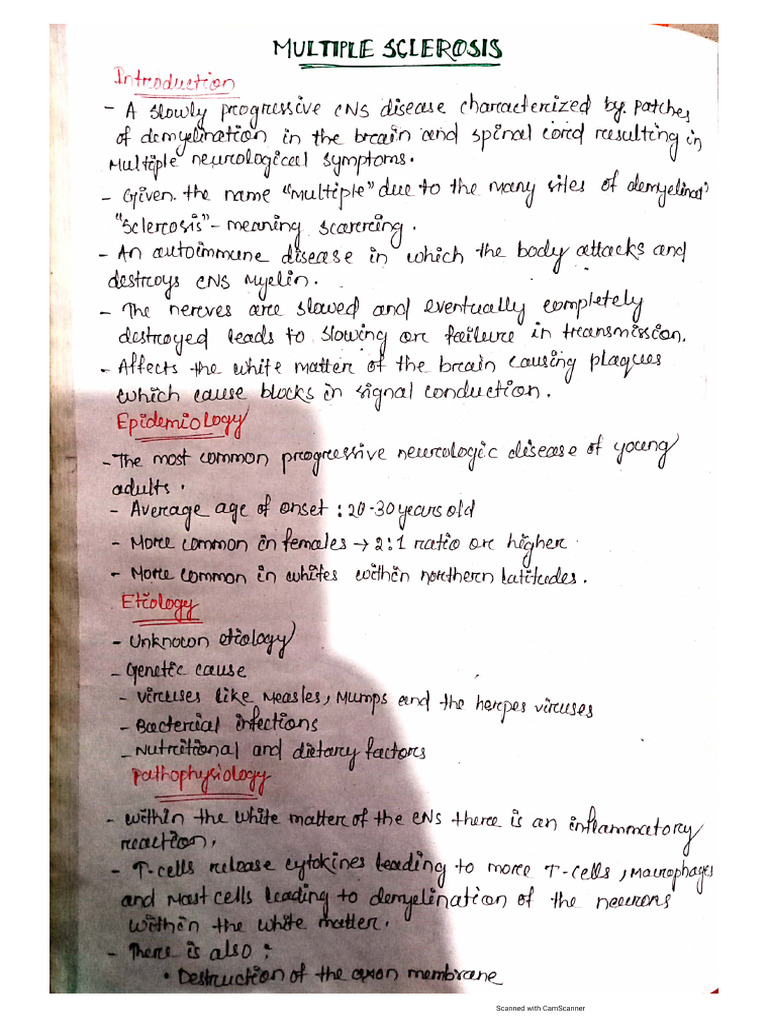 MULTIPLE SCLEROSIS
Introduction
- A slowly progressive CNS disease characterized by patches
of demyelination in the brain and spinal cord resulting in
Multiple neurological symptoms.
- Given the name "Multiple" due to the many sites of demyelinat'
"Sclerosis" - meaning scarring.
- An autoimmune disease in which the body attacks and
destroys CNS Myelin.
- The nerves are slowed and eventually completely
destroyed leads to slowing or failure in transmission.
- Affects the white matter of the brain causing plaques
which cause blocks in signal conduction.
Epidemiology
- The most common progressive neurologic disease of young
adults.
- Average age of onset : 20-30 years old
- More common in females → 2:1 ratio or higher
- More common in whites within northern latitudes.
Etiology
- Unknown etiology
- Genetic cause
- Viruses like Measles, Mumps and the herpes viruses
- Bacterial infections
- Nutritional and dietary factors
Pathophysiology
- within the white matter of the CNS there is an inflammatory
reaction,
- T-cells release cytokines leading to more T-cells, Macrophages
and Mast cells leading to demyelination of the neurons
within the white matter.
- There is also :
• Destruction of the axon membrane
Scanned with CamScanner